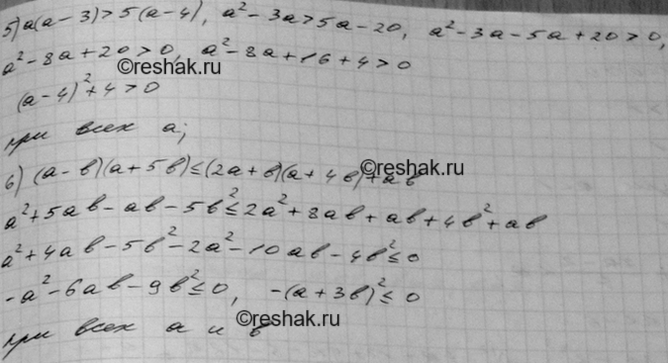 5) a(a-3)>5(a-4), a²-3a>5a-20, a²-3a-5a+20>0,
a²-8a+20>0, a²-8a+16+4>0
©reshak.ru
(a-4)²+4>0
при всех a;
©reshak.ru
6) (a-в)(a+5в)≤(2a+в)(a+4в)+aв
a²+5aв-aв-5в²≤2a²+8aв+aв+4в²+aв
a²+4aв-5в²-2a²-10aв-4в²≤0
-a²-6aв-9в²≤0, -(a+3в)²≤0
©reshak.ru
при всех a и в